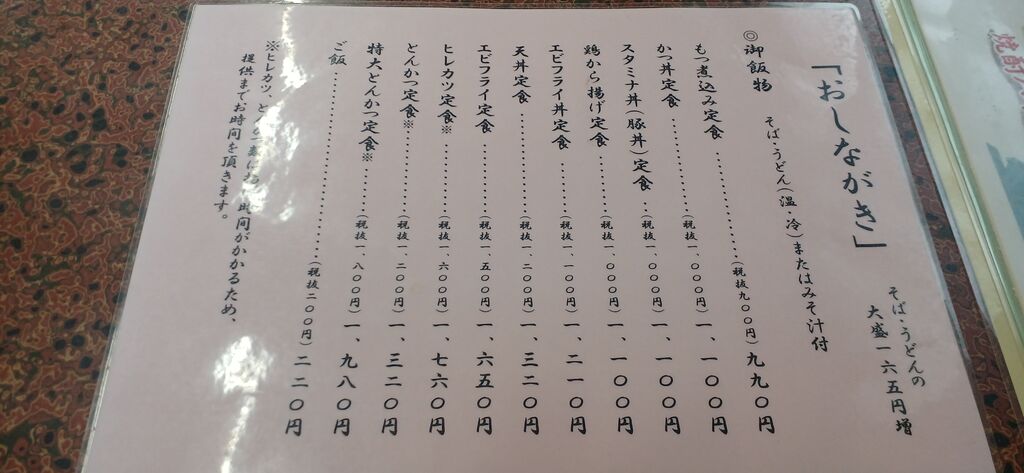 「おしながき」
そば・うどんの
大盛一六五円増
◎御飯物 そば・うどん(温・冷)またはみそ汁付
もつ煮込み定食…………(税抜九〇〇円)九九〇円
かつ丼定食…………(税抜一、〇〇〇円)一、一〇〇円
スタミナ丼(豚丼)定食…(税抜一、〇〇〇円)一、一〇〇円
鶏から揚げ定食………(税抜一、〇〇〇円)一、一〇〇円
エビフライ丼定食……(税抜一、一〇〇円)一、二一〇円
天丼定食……………(税抜一、二〇〇円)一、三二〇円
エビフライ定食………(税抜一、五〇〇円)一、六五〇円
ヒレカツ定食※………(税抜一、六〇〇円)一、七六〇円
とんかつ定食※………(税抜一、二〇〇円)一、三二〇円
特大とんかつ定食※……(税抜一、八〇〇円)一、九八〇円
ご飯……………………(税抜二〇〇円)二二〇円
※ヒレカツ、時間がかかるため、
提供までお時間を頂きます。
焼酎